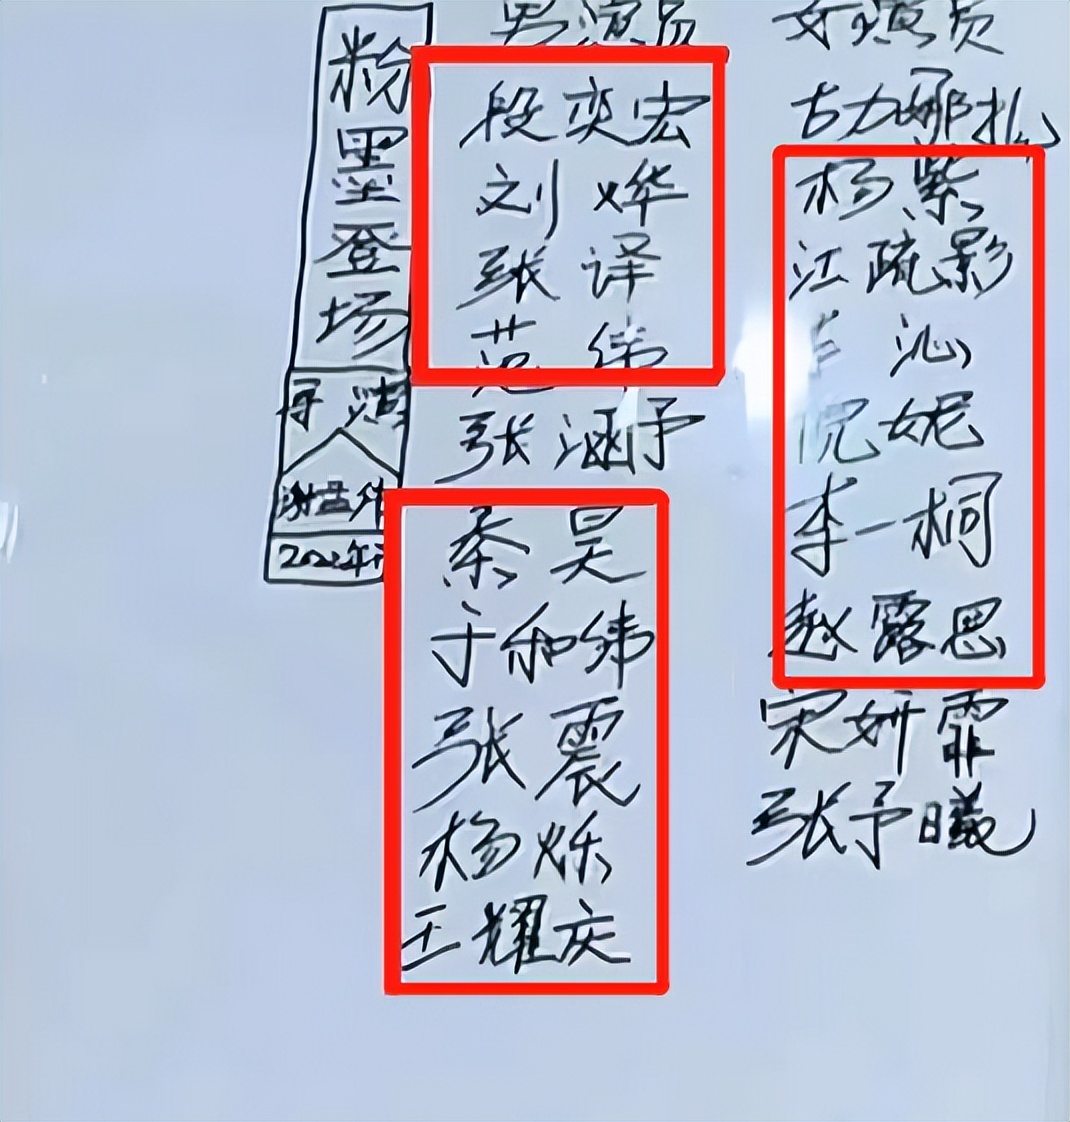 粉墨登场
导演
谢孟伟
男演员
段奕宏
刘烨
张译
范伟
张涵予
秦昊
于和伟
张震
杨烁
王耀庆
女演员
古力娜扎
杨紫
江疏影
沁
倪妮
李一桐
赵露思
宋妍霏
张予曦